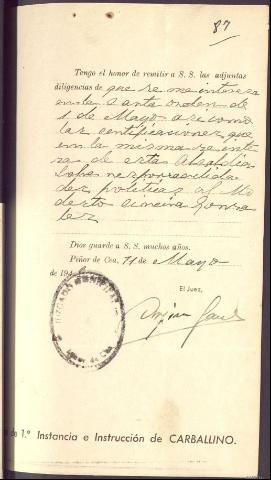 87
Tengo el honor de remitir a S. S. las adjuntas
diligencias de que se me interesa
en la Carta orden de
1 de Mayo asi como
las certificaciones que
en la misma se inte
de esta Alcaldia
sobre responsabilida
des politicas al Mo
desto
lez
Dios guarde a S. S. muchos años.
Piñor de Cea, 11 de Mayo
de 194
El Juez,
JUZGADO MUNICIPAL
Piñor de Cea
de 1.ª Instancia e Instrucción de CARBALLINO.